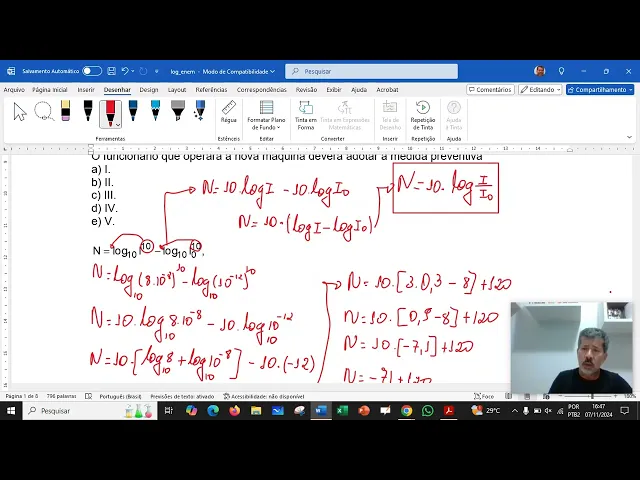 Salvamento Automático
log_enem - Modo de Compatibilidade
Pesquisar
Arquivo Página Inicial Inserir Desenhar Design Layout Referências Correspondências Revisão Exibir Ajuda Acrobat
Comentários Editando Compartilhamento
Régua
Formatar Plano de Fundo
Tinta em Forma
Tinta em Expressões Matemáticas
Repetição de Tinta
Repetição de Tinta
Ferramentas Estênceis Converter
O funcionário que operará a nova máquina deverá adotar a medida preventiva
a) I.
b) II.
c) III.
d) IV.
e) V.
N = 10.log I - 10.log I0
N = 10.(log I - log I0)
N = 10. log I/I0
N = log10 I^10 - log10 I0^10,
N = log10 (8.10^-8)^10 - log10 (10^-12)^10
N = 10.log10 8.10^-8 - 10.log10 10^-12
N = 10.[log10 8 + log10 10^-8] - 10.(-12)
N = 10.[3.0,3 - 8] + 120
N = 10.[0,9 - 8] + 120
N = 10.[-7,1] + 120
N = -71 + 120
Página 1 de 8 796 palavras Português (Brasil) Previsões de texto: ativado Acessibilidade: não disponível Foco
Pesquisar
29°C
POR
PTB2
16:47
07/11/2024